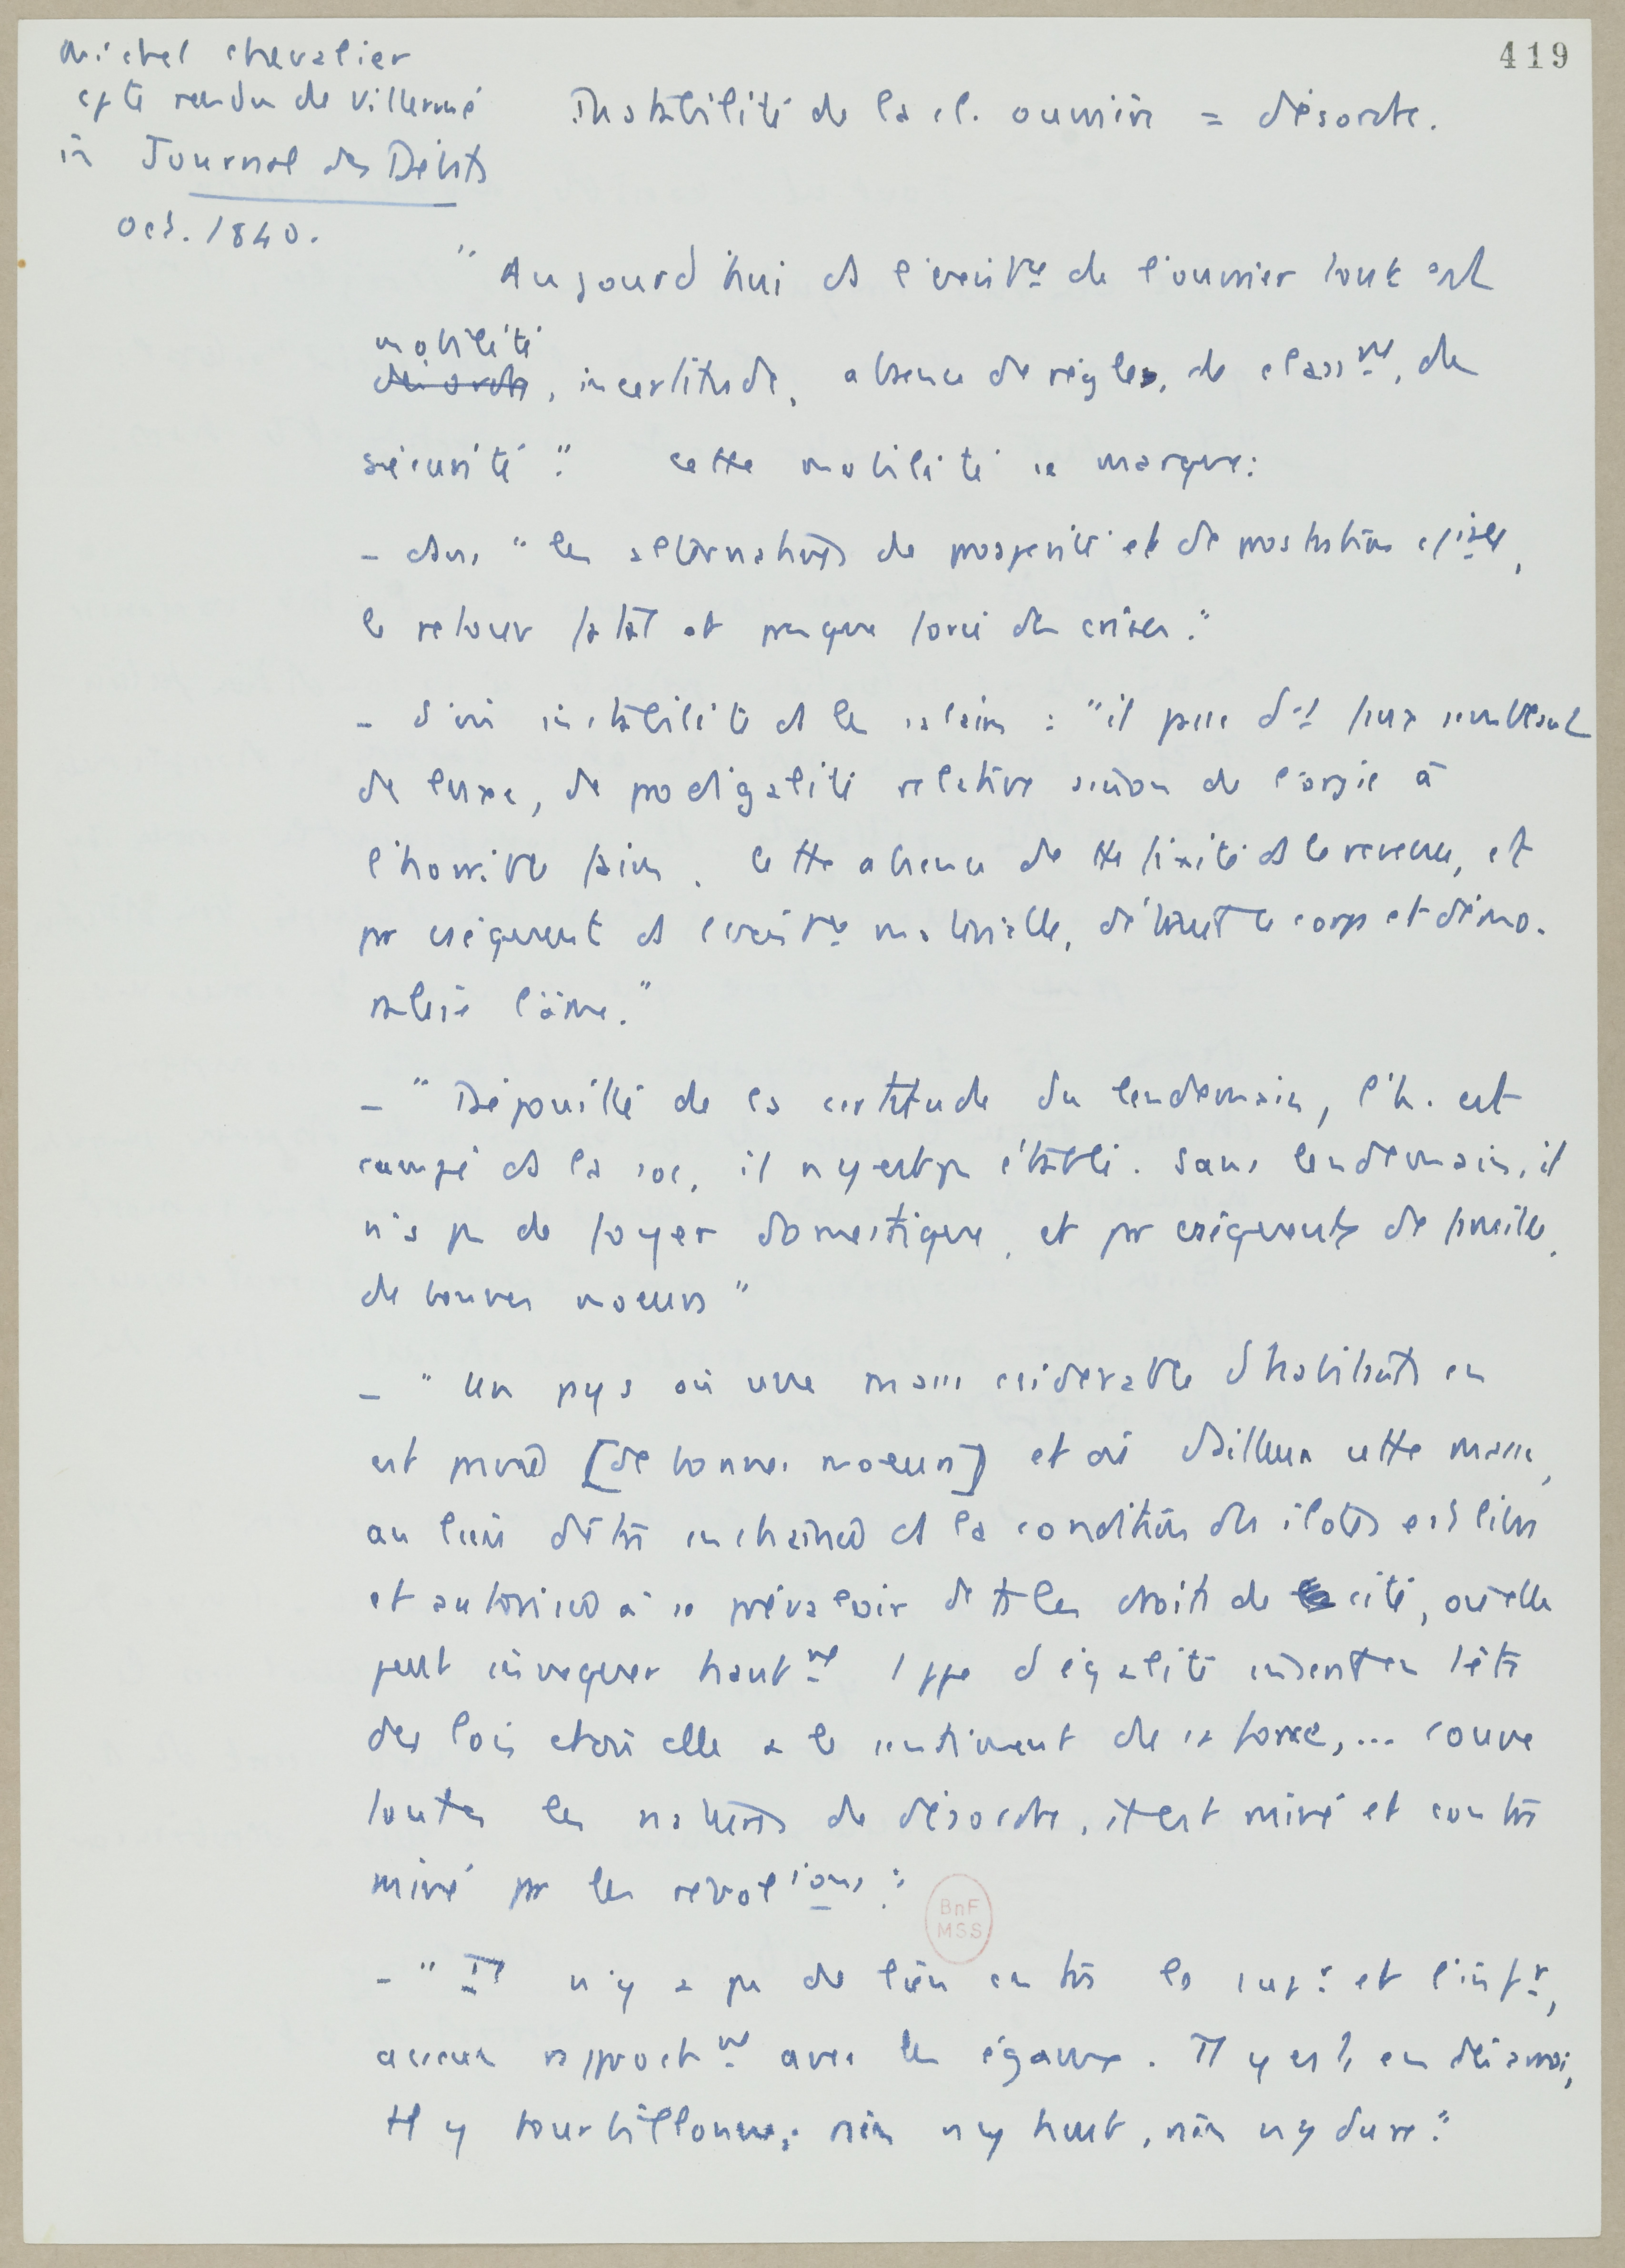 419
Michel Chevalier
cpte rendu de Villermé
in Journal des Débats
oct. 1840.
Instabilité de la cl. ouvrière = désordre.
" Aujourd'hui ds l'exist^ce de l'ouvrier tout est
mobilité
désordre, incertitude, absence de règles, de class^nt, de
sécurité." Cette mobilité se marque:
- dans " les alternatives de prospérité et de prostration
le retour fatal et presque forcé des crises."
- instabilité ds les salaires : "il passe d'1 faux semblant
de luxe, de prodigalité relative sinon de l'orgie à
l'horrible faim. Cette absence de tte fixité ds le revenu, et
pr cséquent ds l'exist^ce matérielle, détruit le corps et démo-
ralise l'âme."
- " Dépouillé de la certitude du lendemain, l'h. est
campé ds la soc, il n'y est pas établi. Sans lendemain, il
n'a pas de foyer domestique, et pr cséquent de famille,
de bonnes moeurs "
- " Un pays où une masse csidérable d'habitants en
est privée [de bonnes moeurs] et où d'ailleurs cette masse,
au lieu d'être enchaînée ds la condition des ilotes est libre
et autorisée à se prévaloir de ts les droits de cité, où elle
peut invoquer haut^nt 1 ppe d'égalité inscrit en tête
des lois et où elle a le sentiment de sa force,... couve
toutes les natures de désordre, il est miné et contre
miné pr les revol^ions."
BnF
MSS
- " Il n'y a pas de lien entre le sup^r et l'inf^r,
aucun rapproch^nt avec les égaux. Il y est en désarroi,
tt y tourbillonne; rien n'y tient, rien n'y dure."